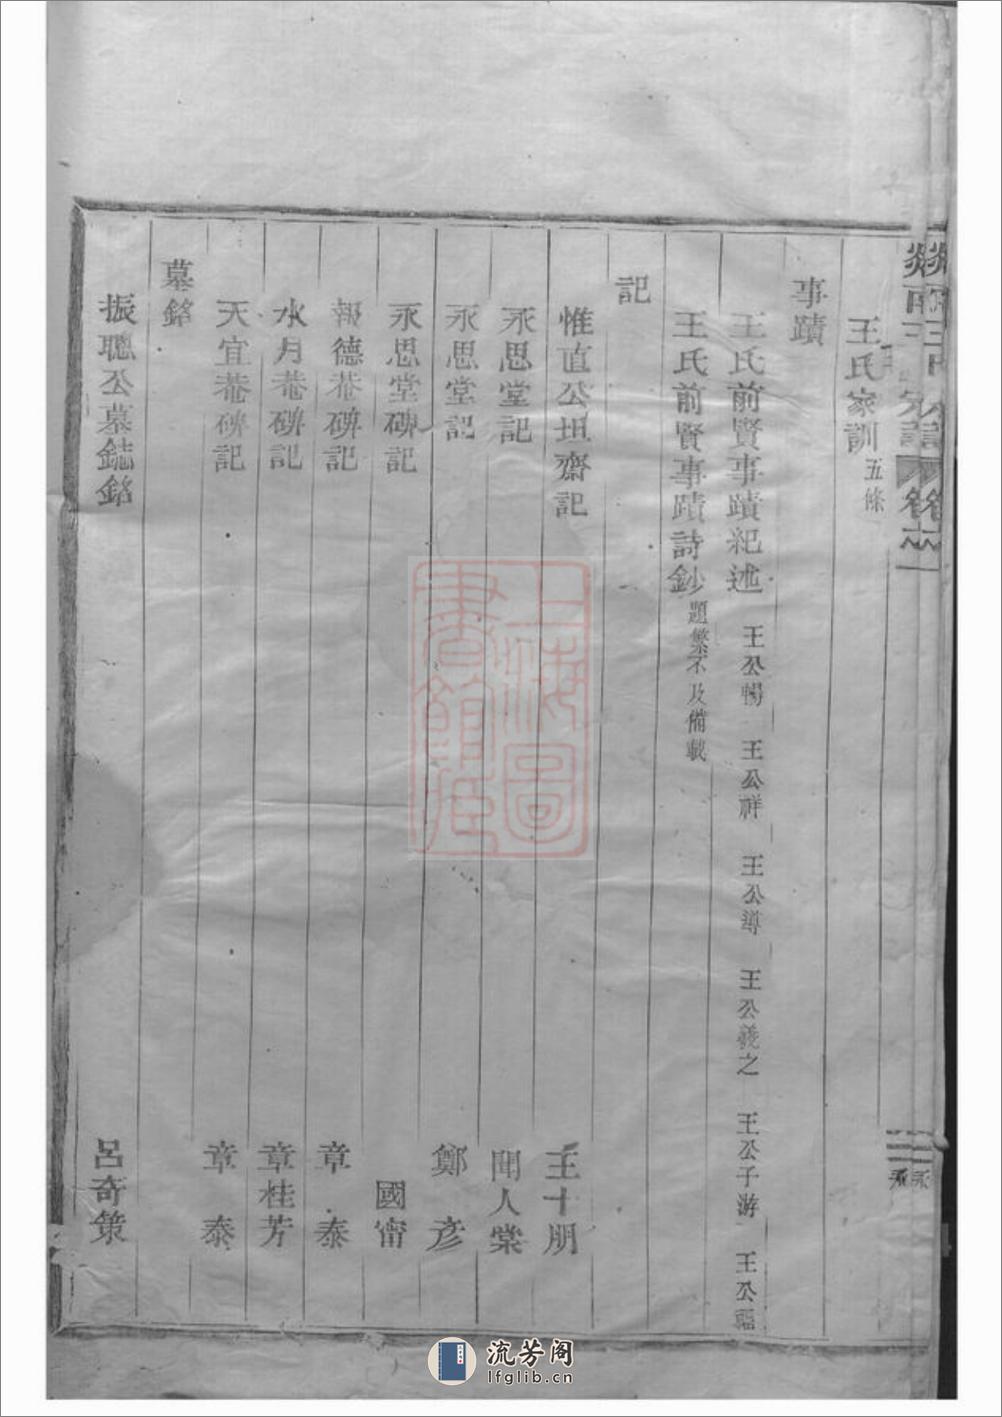 王氏家訓 五條
事蹟
王氏前賢事蹟紀述 王公暢 王公祥 王公導 王公羲之 王公子游 王公
王氏前賢事蹟詩鈔 題繁不及備載
記
惟直公坦齋記 王十朋
永思堂記 聞人棠
永思堂記 鄭彥
永思堂碑記 國甯
報德菴碑記 章泰
水月菴碑記 章桂芳
天宜菴碑記 章泰
墓銘
振聰公墓誌銘 呂奇策
上海圖書館藏
流芳阁
lfglib.cn